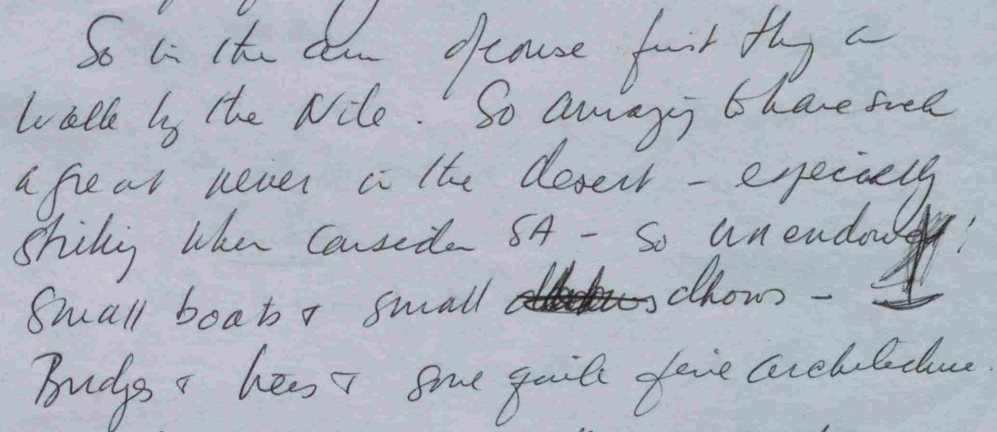 So in the am of course first thing a
walk by the Nile. So amazing to have such
a great river in the desert - especially
striking when consider SA - so unendowed!
Small boats & small dhows -
Bridges & trees & some quite fine architecture.